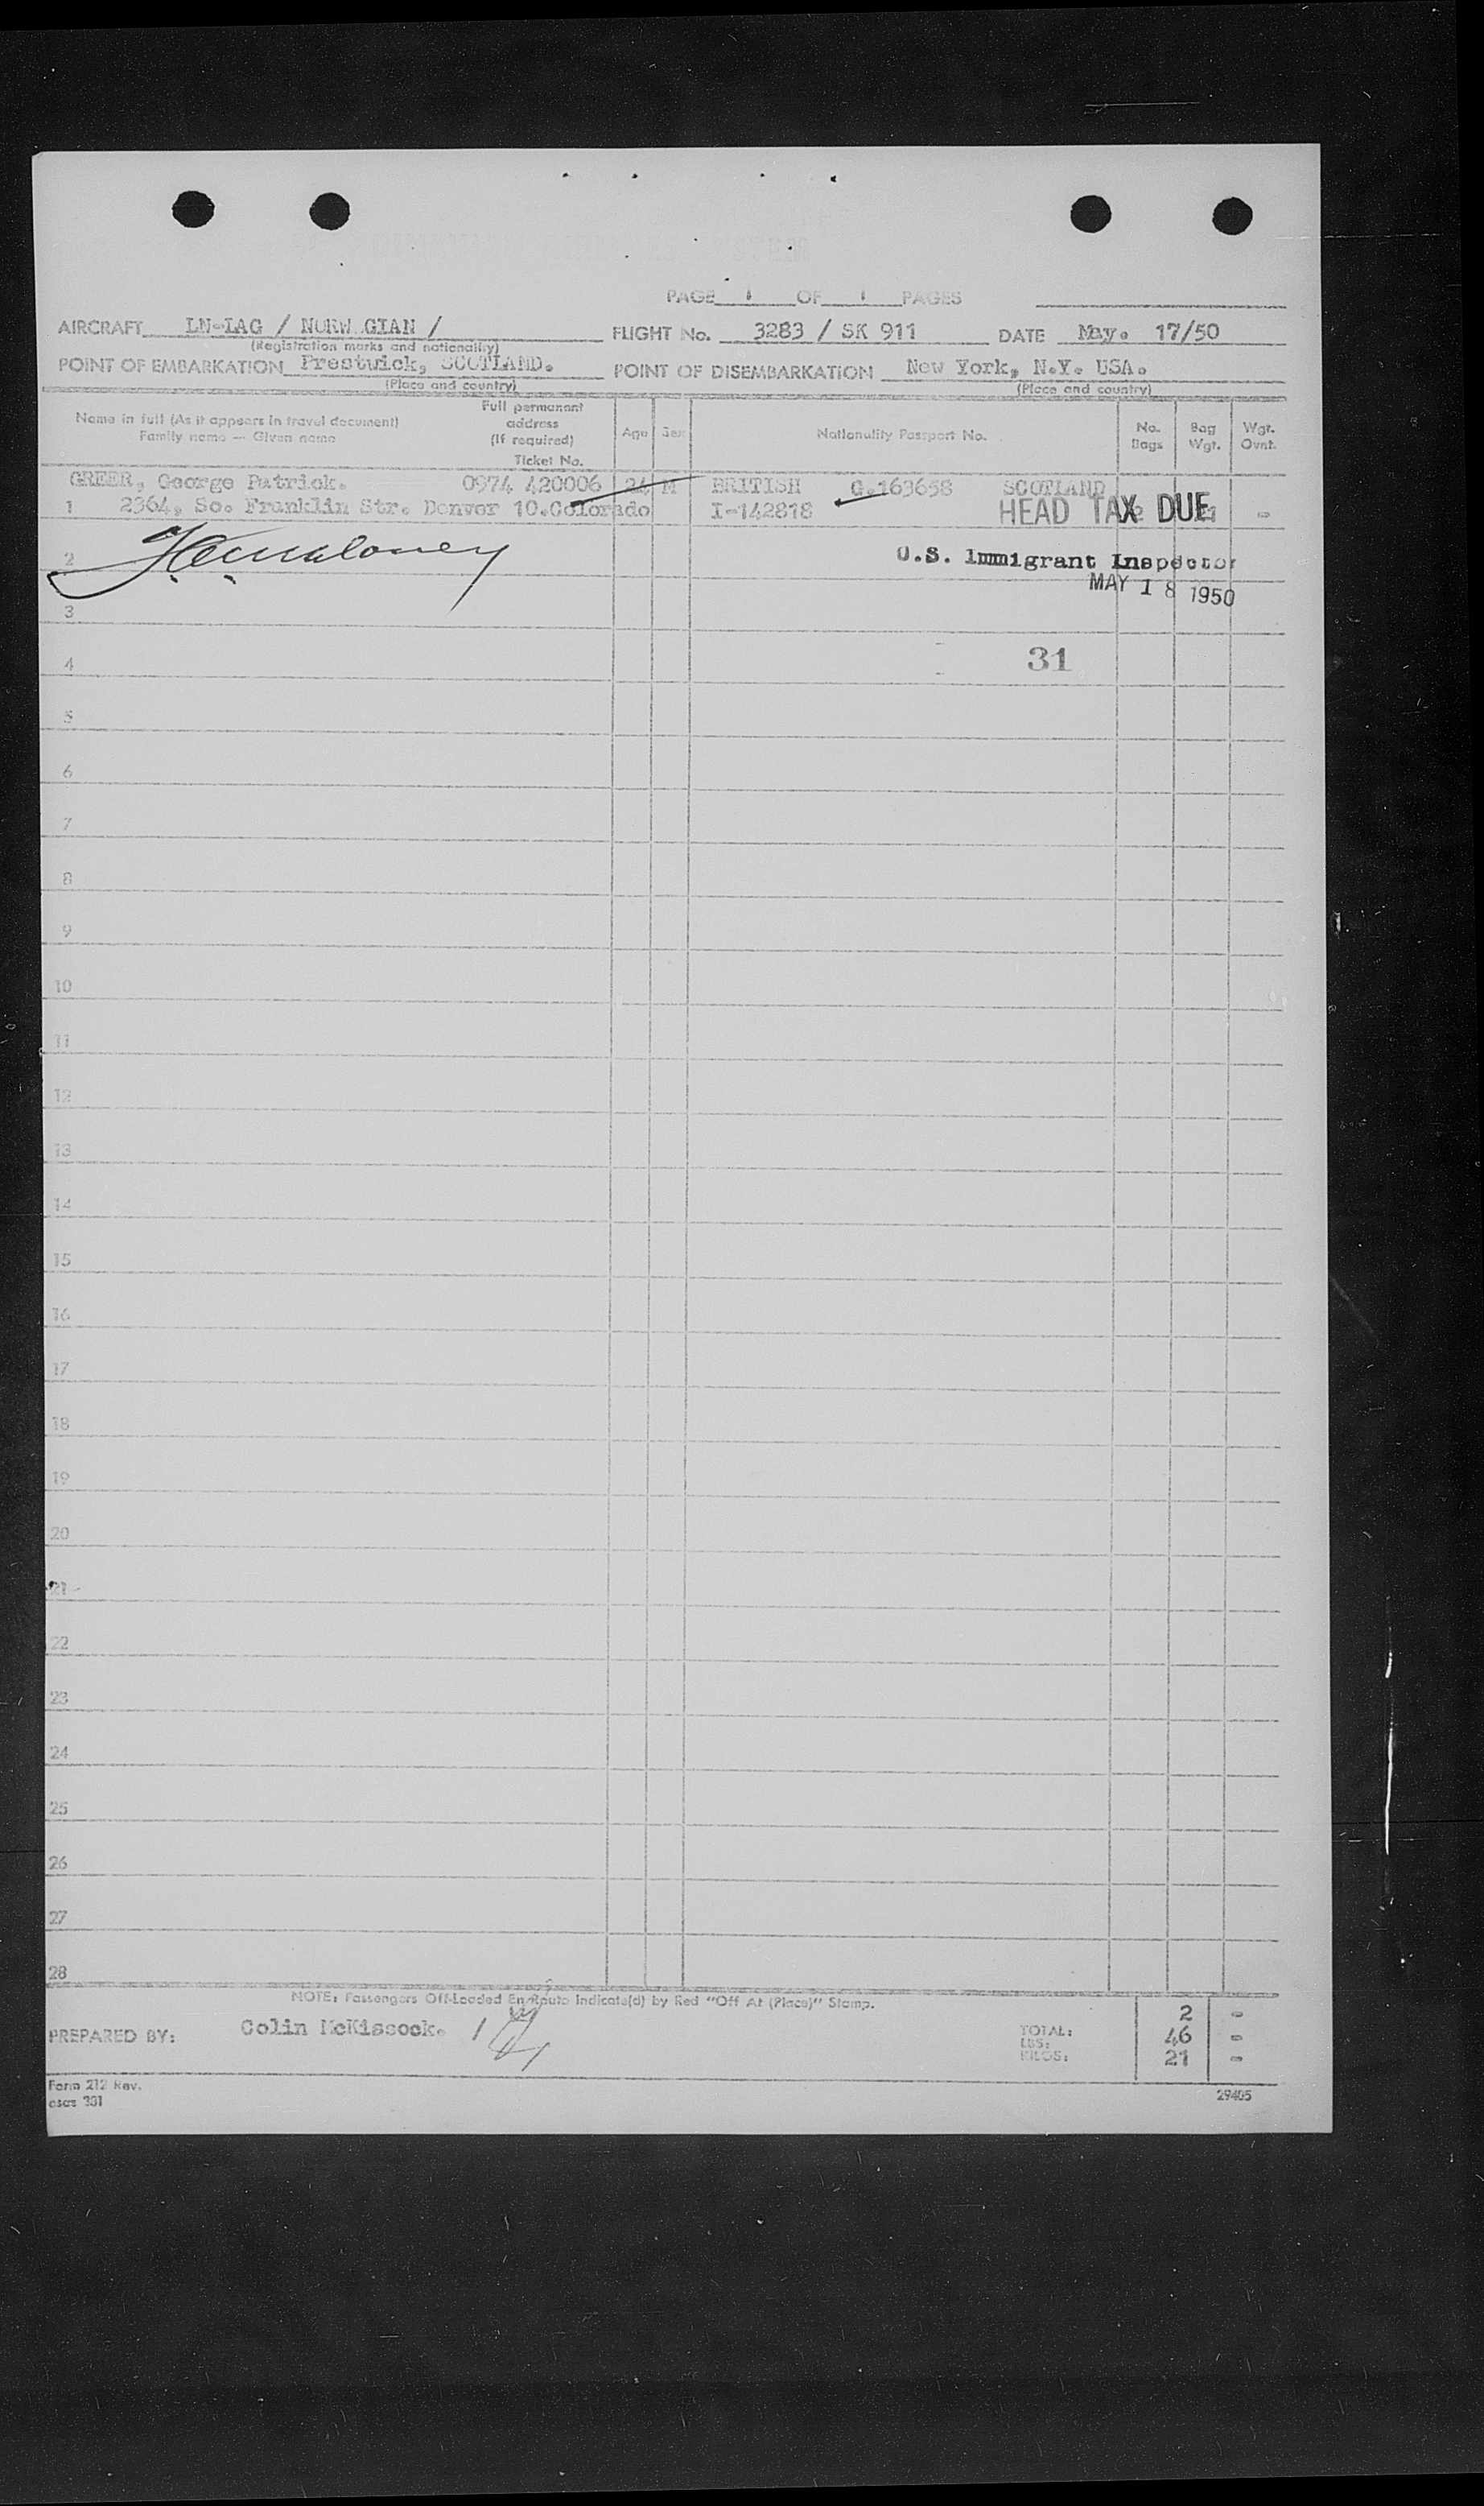 PAGE 1 OF 1 PAGES
AIRCRAFT LN-IAG / NORW GIAN / FLIGHT No. 3283 / SK 911 DATE May. 17/50
(Registration marks and nationality)
POINT OF EMBARKATION Prestwick, SCOTLAND. POINT OF DISEMBARKATION New York, N.Y. USA.
(Place and country) (Place and country)
Name in full (As it appears in travel document)
Family name — Given name
Full permanent
address
(If required)
Ticket No.
Age Sex Nationality Passport No. No.
Bags Bag
Wgt. Wgt.
Ovnt.
GREER, George Patrick. 0974 420006 24 M BRITISH G.163658 SCOTLAND
1 2364, So. Franklin Str. Denver 10.Colorado I-142818 HEAD TAX DUE 2 -
2 U.S. Immigrant Inspector
MAY 18 1950
3
4 31
5
6
7
8
9
10
11
12
13
14
15
16
17
18
19
20
21
22
23
24
25
26
27
28
NOTE: Passengers Off-Loaded En Route Indicate(d) by Red "Off At (Place)" Stamp.
PREPARED BY: Colin McKissock.
TOTAL: 2 -
LBS: 46 -
KILOS: 21 -
Form 212 Rev.
29405